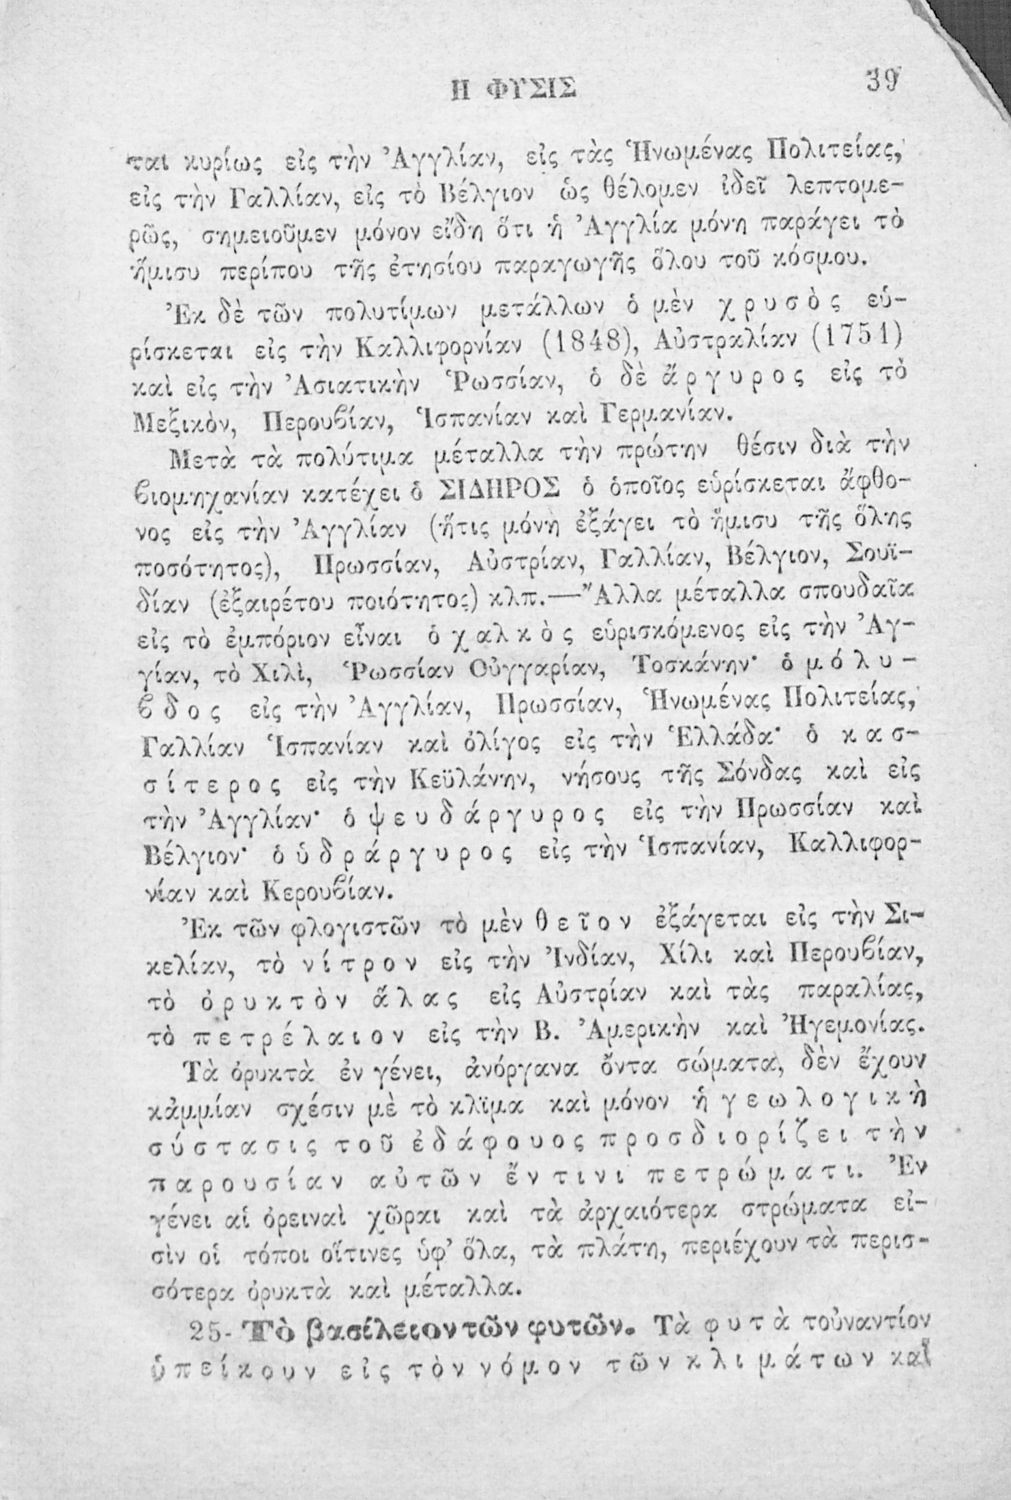 Η ΦΥΣΙΣ 39
ται κυρίως εἰς τὴν Ἀγγλίαν, εἰς τὰς Ἡνωμένας Πολιτείας,
εἰς τὴν Γαλλίαν, εἰς τὸ Βέλγιον ὡς θέλομεν ἰδεῖ λεπτομε-
ρῶς, σημειοῦμεν μόνον εἴδη ὅτι ἡ Ἀγγλία μόνη παράγει τὸ
ἥμισυ περίπου τῆς ἐτησίου παραγωγῆς ὅλου τοῦ κόσμου.
Ἐκ δὲ τῶν πολυτίμων μετάλλων ὁ μὲν χρυσὸς εὑ-
ρίσκεται εἰς τὴν Καλλιφορνίαν (1848), Αὐστραλίαν (1751)
καὶ εἰς τὴν Ἀσιατικὴν Ῥωσσίαν, ὁ δὲ ἄργυρος εἰς τὸ
Μεξικὸν, Περουβίαν, Ἱσπανίαν καὶ Γερμανίαν.
Μετὰ τὰ πολύτιμα μέταλλα τὴν πρώτην θέσιν διὰ τὴν
βιομηχανίαν κατέχει ὁ ΣΙΔΗΡΟΣ ὁ ὁποῖος εὑρίσκεται ἄφθο-
νος εἰς τὴν Ἀγγλίαν (ἥτις μόνη ἐξάγει τὸ ἥμισυ τῆς ὅλης
ποσότητος), Πρωσσίαν, Αὐστρίαν, Γαλλίαν, Βέλγιον, Σουϊ-
δίαν (ἐξαιρέτου ποιότητος) κλπ.—Ἄλλα μέταλλα σπουδαῖα
εἰς τὸ ἐμπόριον εἶναι ὁ χαλκὸς εὑρισκόμενος εἰς τὴν Ἀγ-
γίαν, τὸ Χιλὶ, Ῥωσσίαν Οὑγγαρίαν, Τοσκάνην· ὁ μόλυ-
βδος εἰς τὴν Ἀγγλίαν, Πρωσσίαν, Ἡνωμένας Πολιτείας,
Γαλλίαν Ἱσπανίαν καὶ ὀλίγος εἰς τὴν Ἑλλάδα· ὁ κασ-
σίτερος εἰς τὴν Κεϋλάνην, νήσους τῆς Σόνδας καὶ εἰς
τὴν Ἀγγλίαν· ὁ ψευδάργυρος εἰς τὴν Πρωσσίαν καὶ
Βέλγιον· ὁ ὑδράργυρος εἰς τὴν Ἱσπανίαν, Καλλιφορ-
νίαν καὶ Κερουβίαν.
Ἐκ τῶν φλογιστῶν τὸ μὲν θεῖον ἐξάγεται εἰς τὴν Σι-
κελίαν, τὸ νίτρον εἰς τὴν Ἰνδίαν, Χίλι καὶ Περουβίαν,
τὸ ὀρυκτὸν ἅλας εἰς Αὐστρίαν καὶ τὰς παραλίας,
τὸ πετρέλαιον εἰς τὴν Β. Ἀμερικὴν καὶ Ἡγεμονίας.
Τὰ ὀρυκτὰ ἐν γένει, ἀνόργανα ὄντα σώματα, δὲν ἔχουν
κἀμμίαν σχέσιν μὲ τὸ κλῖμα καὶ μόνον ἡ γεωλογικὴ
σύστασις τοῦ ἐδάφουος προσδιορίζει τὴν
παρουσίαν αὐτῶν ἔν τινι πετρώματι. Ἐν
γένει αἱ ὀρειναὶ χῶραι καὶ τὰ ἀρχαιότερα στρώματα εἰ-
σὶν οἱ τόποι οἵτινες ὑφ' ὅλα, τὰ πλάτη, περιέχουν τὰ περισ-
σότερα ὀρυκτὰ καὶ μέταλλα.
25- Τὸ βασίλειον τῶν φυτῶν. Τὰ φυτὰ τοὐναντίον
ὑπείκουν εἰς τὸν νόμον τῶν κλιμάτων καὶ